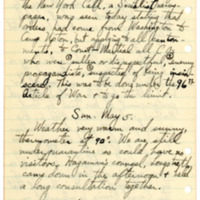 the New York Call, a Socialist
paper, was seen today stating that
orders had come from Washington to
Camp Upton, but applying all
ments, to Court Martial all C.O.s
who were sullen or disrespectful, enemy
propagandists, suspected of being
This was to be done under the 96th
Article of War & to go the limit.
Sun. May 5.
Weather very warm and sunny,
thermometer at 90°. We are still
under quarantine so could have no
visitors. counsel,
came down in the afternoon & had
a long consultation together.